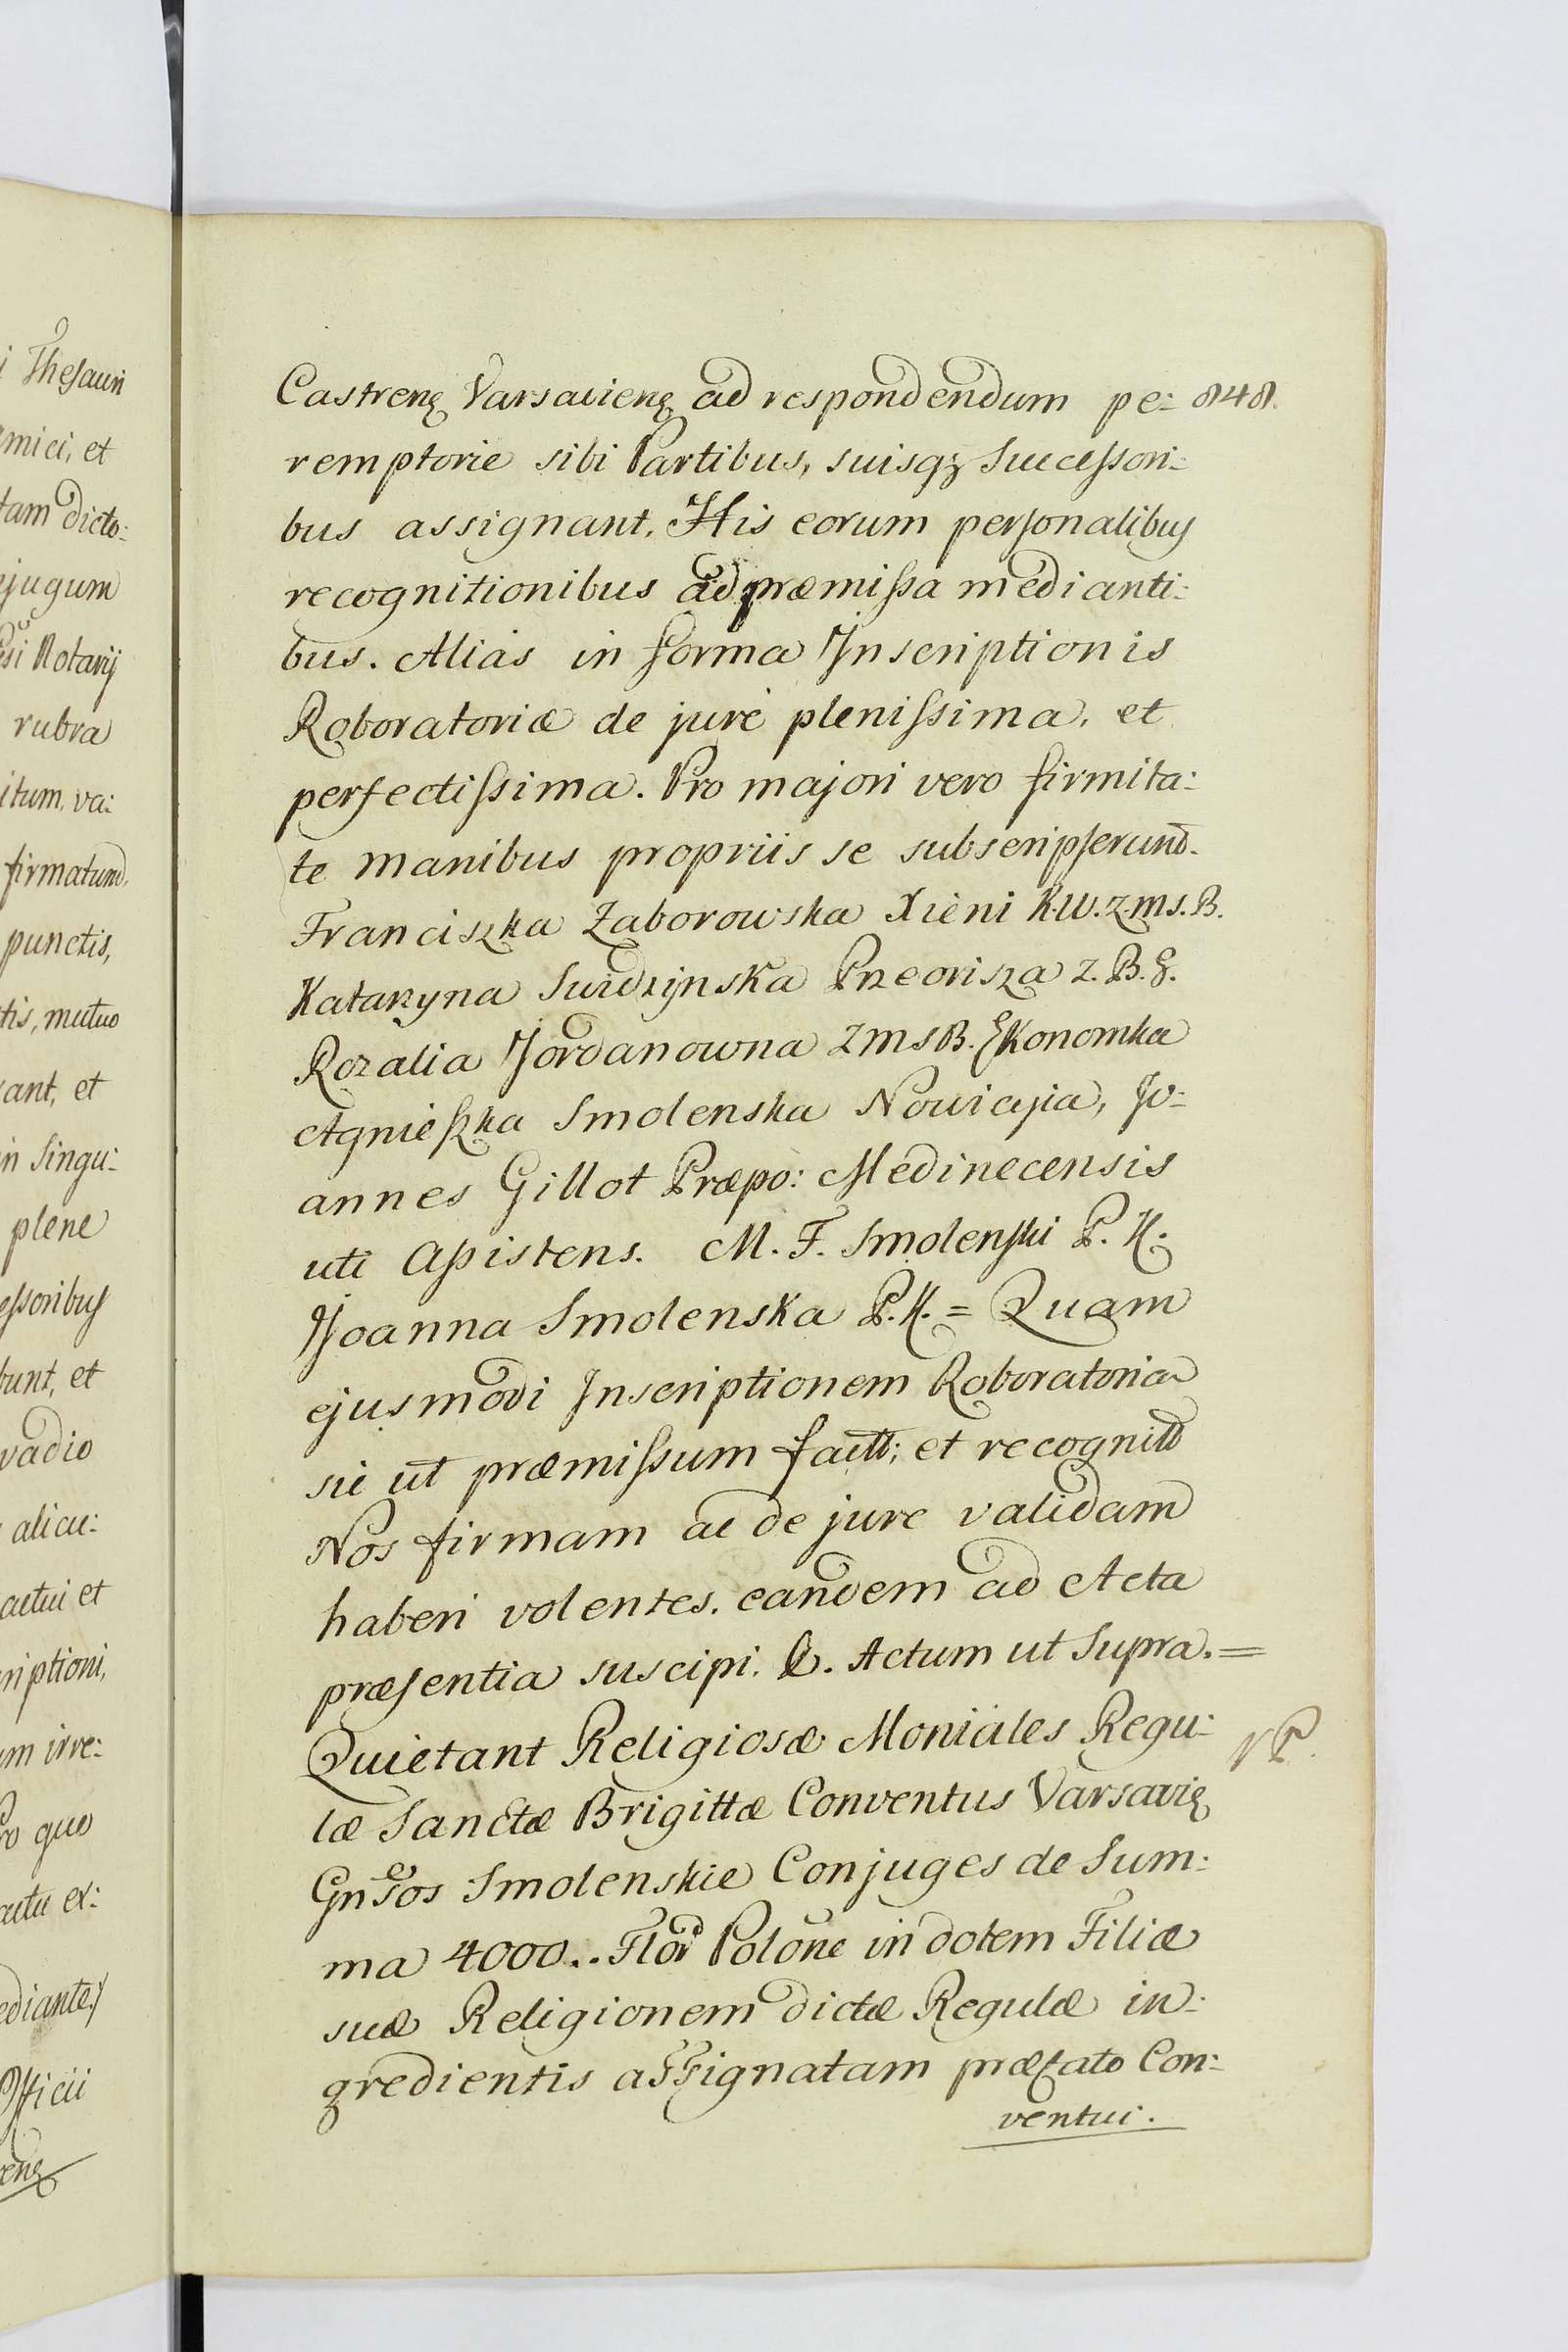 i Thesauri
mici, et
tam dicto:
jugum
si Notarij
rubra
itum, va:
firmatum,
punctis,
tis, mutuo
ant, et
in Singu:
plene
essoribus
bunt, et
vadio
alicu:
actui et
riptioni,
um irre:
Pro quo
actu ex:
ediante
Officii
Castrenę Varsavienę ad respondendum pe: 848.
remptorie sibi Partibus, suisqz Successori:
bus assignant. His eorum personalibus
recognitionibus ad præmissa medianti:
bus. Alias in forma Inscriptionis
Roboratoriæ de jure plenissima, et
perfectissima. Pro majori vero firmita:
te manibus propriis se subscripserunt.
Franciszka Zaborowska Xieni K.W.z.m.s.B.
Katarzyna Swidzijnska Przeorisza z. B. S.
Rozalia Jordanowna Z M S B. Ekonomka
Agnieszka Smolenska Nowicyja, Jo:
annes Gillot Præpo: Medinecensis
uti Assistens. M. F. Smolenski P. K.
Joanna Smolenska P. K. = Quam
ejusmodi Inscriptionem Roboratoria
sic ut præmissum factt; et recognitt
Nos firmam ac de jure validam
haberi volentes, eandem ad Acta
præsentia suscipi. &. Actum ut Supra. =
Quietant Religiosæ Moniales Regu:
læ Sanctæ Brigittæ Conventus Varsavię
Gnsos Smolenskie Conjuges de Sum:
ma 4000.. Flor Polone in dotem Filiæ
suæ Religionem dictæ Regulæ in:
gredientis assignatam præfato Con:
ventui.